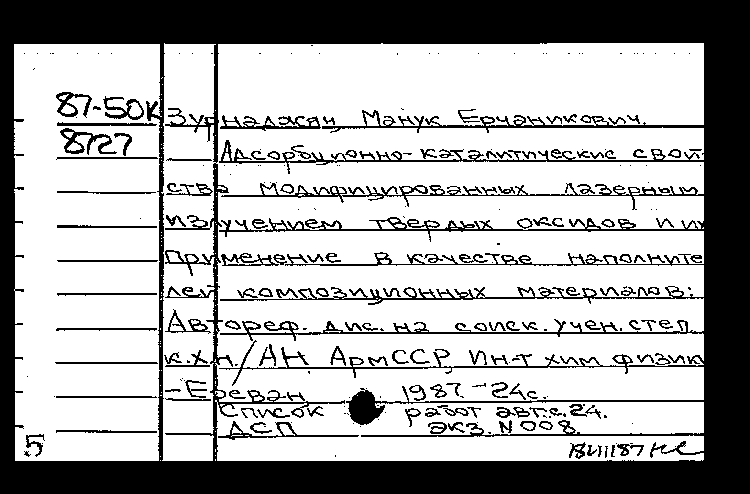 87-50К Зурнаджян, Манук Ерчаникович.
8127 Адсорбционно-каталитические свой-
ства модифицированных лазерным
излучением твердых оксидов и их
применение в качестве наполните
лей композиционных материалов:
Автореф. дис. на соиск. учен. степ.
к.х.н / АН АрмССР, Ин-т хим физик
-Ереван 1987 -24с.
Список работ авт.: с.24.
ДСП экз. N 008.
5